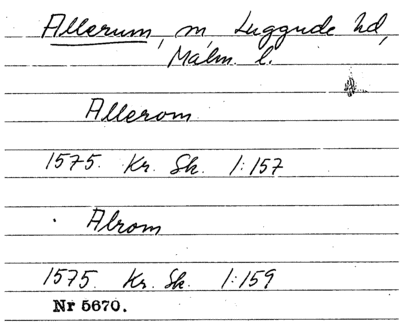 Allerum, m, Luggude hd,
Malm. l.
Allerom
1575. Kr. Sk. 1:157
Alrom
1575. Kr. Sk. 1:159
Nr 5670.